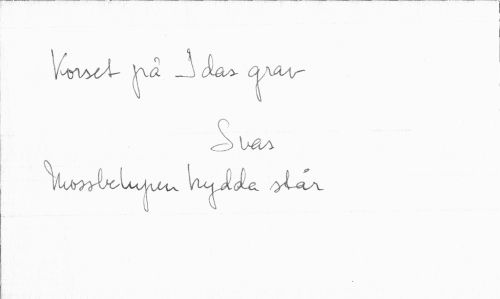 Korset på Idas grav
Svas
Mossbelupen hydda står